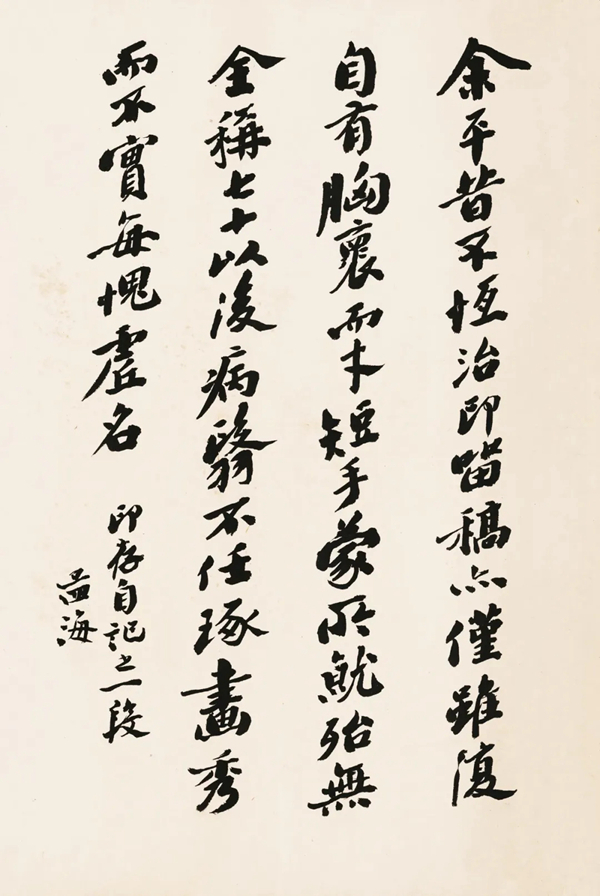 余平昔不恆治印畱稿亦僅雖復
自有胸褱而才短手蒙所就殆無
全稱七十以後病翳不任琢畫秀
而不實每愧虛名
印存自記之一段
孟海